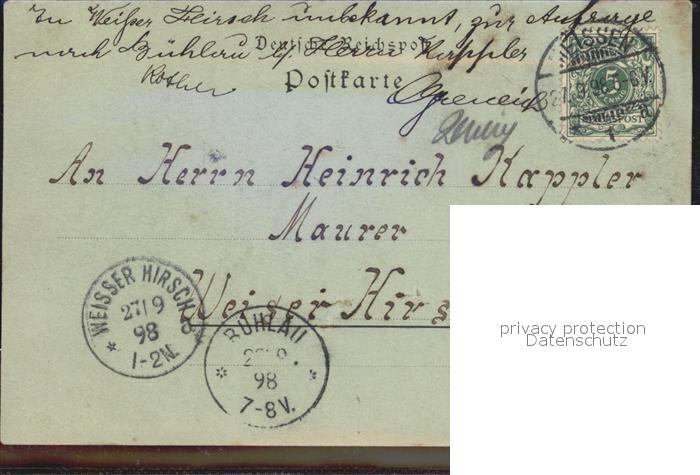 In Weißer Hirsch unbekannt, zur Anfrage
nach Bühlau b/ Herrn Kappler
Deutsche Reichspost
Postkarte
MEISSEN
5
REICHSPOST
An Herrn Heinrich Kappler
Maurer
Weiser Hirs
WEISSER HIRSCH
27/9
98
1-2N.
BÜHLAU
98
7-8V.
privacy protection
Datenschutz